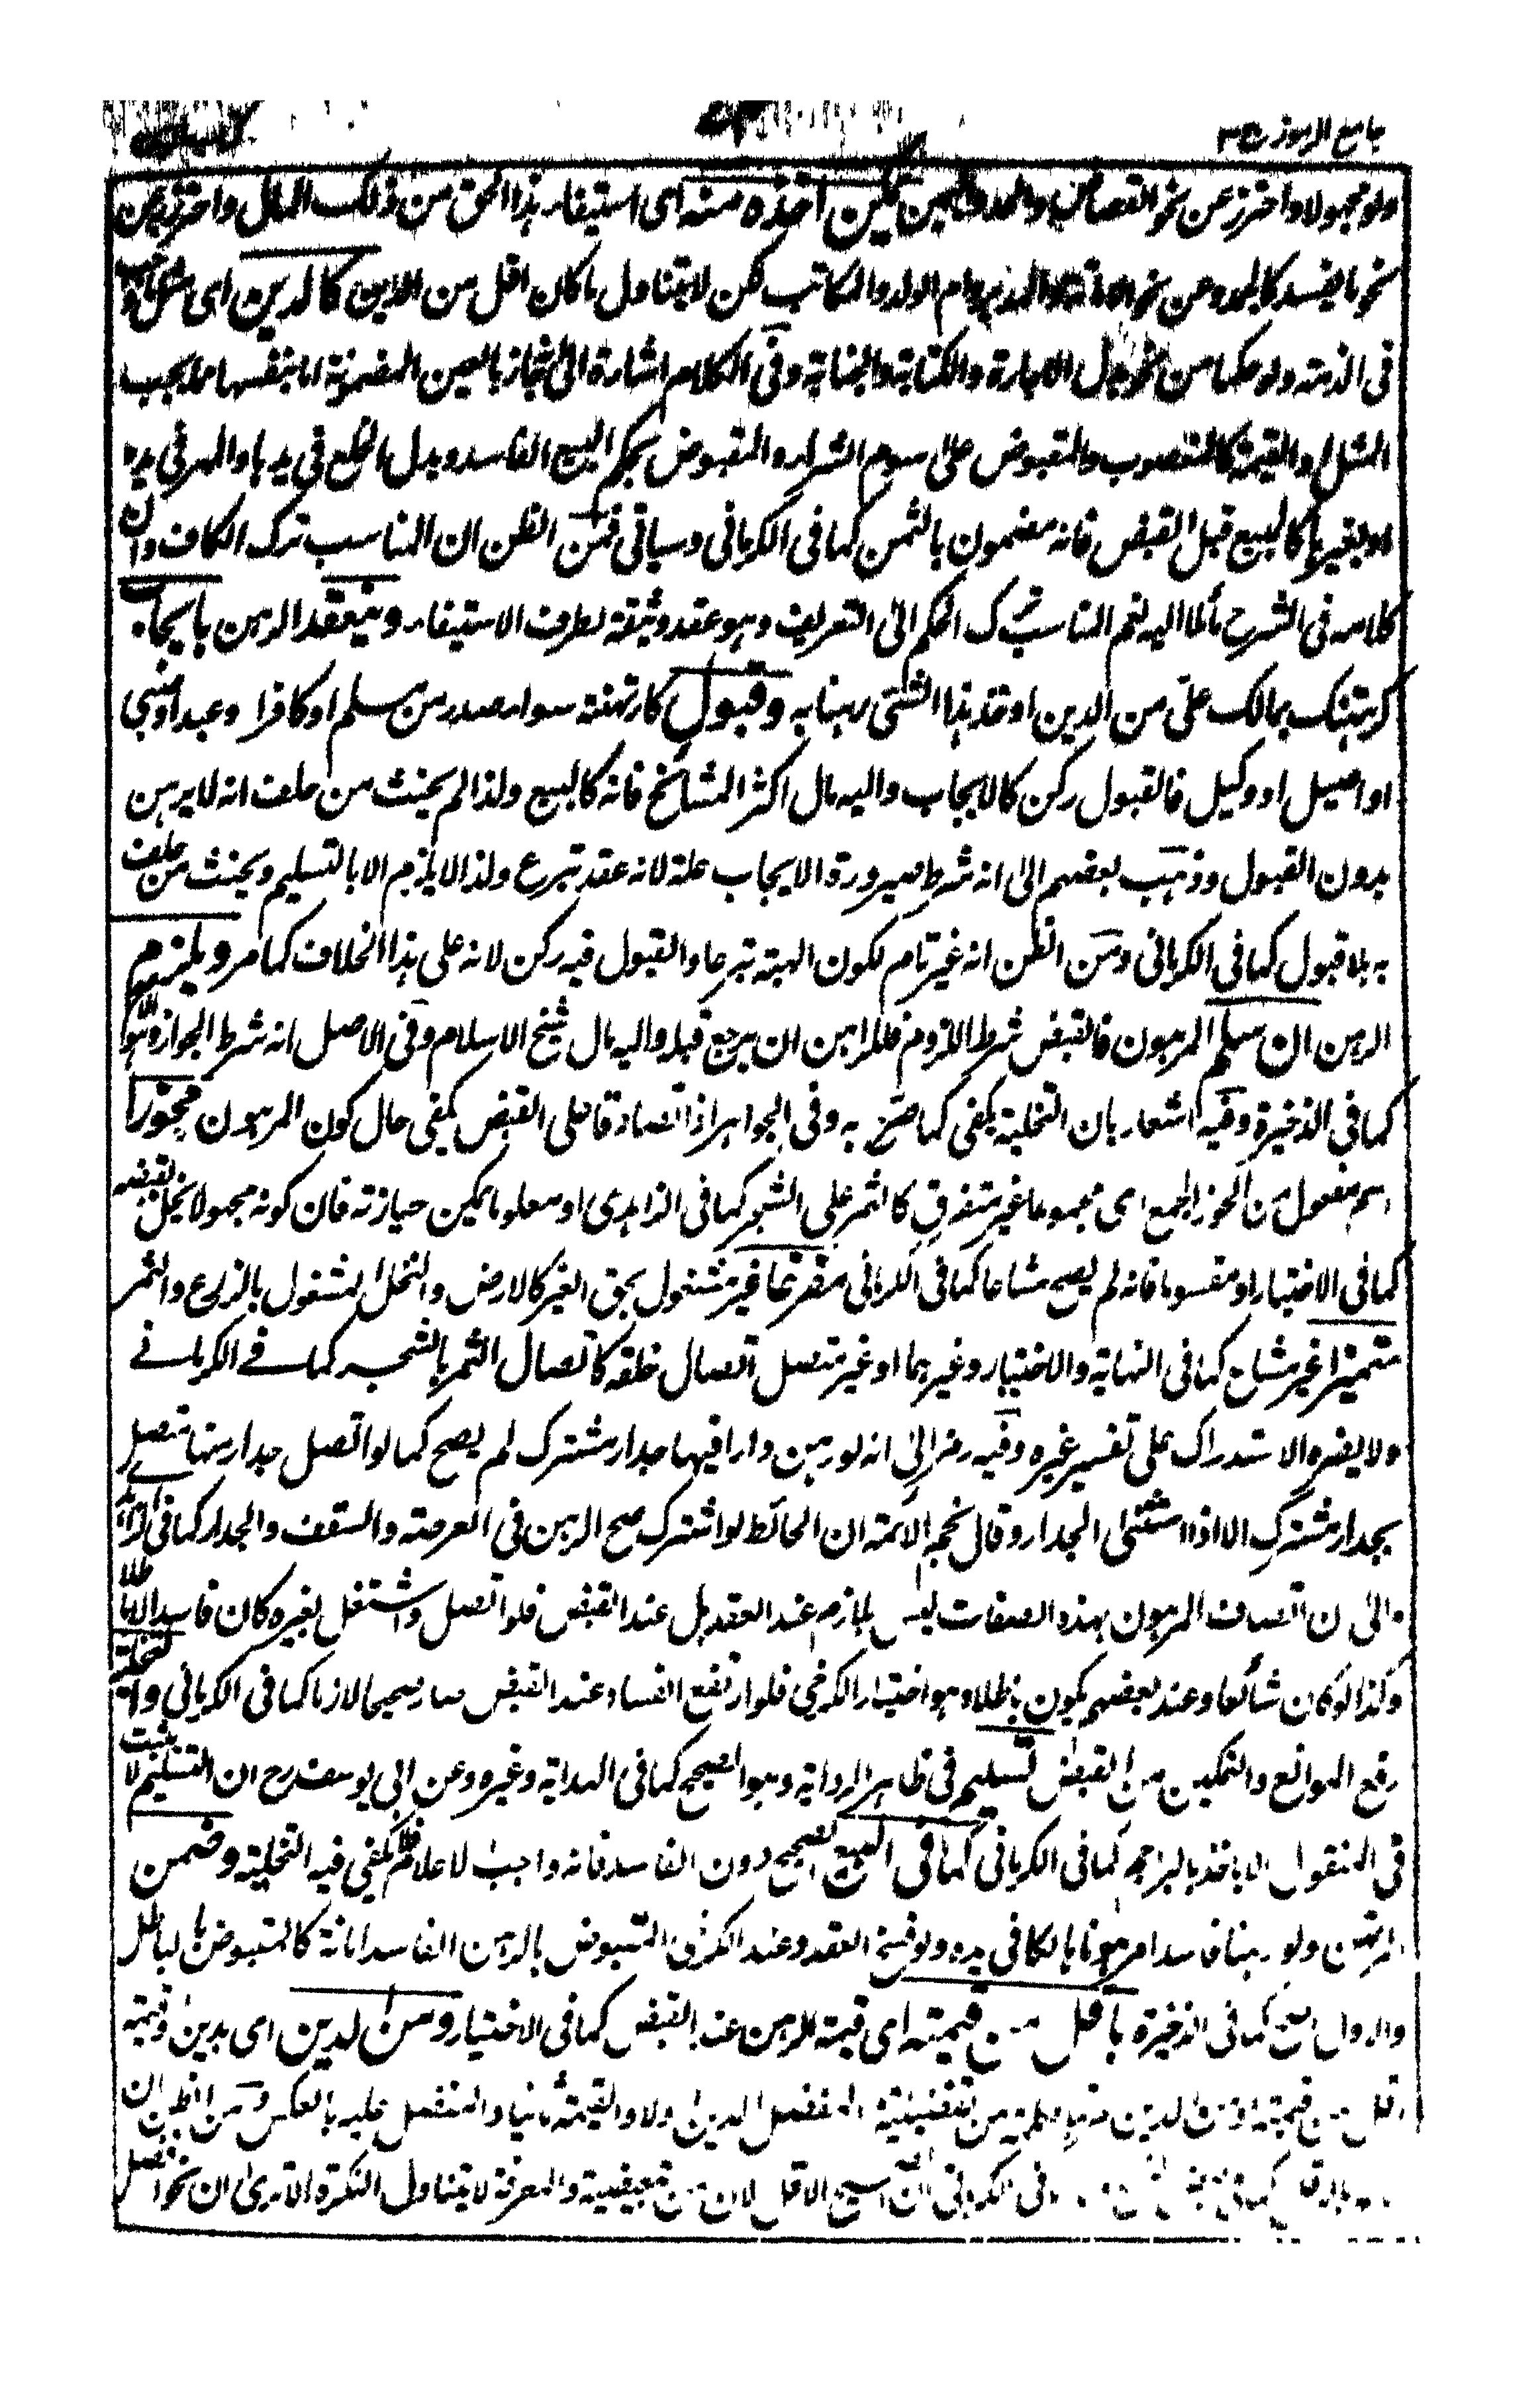 جامع الرموز ج ٣
ولو مجهولا واحترز عن نحو القصاص والحد واليمين يمكن اخذه منه اى استيفاء هذا الحق من ذلك المال واحترز به عن
نحو ما يفسد كالجمد وعن نحو الامانة والمدبر وام الولد والمكاتب لكن لا يتناول ما كان اقل من الدين كالدين اى مثل ما وجب
فى الذمة ولو حكما من نحو بدل الاجارة والكتابة والجناية وفى الكلام اشارة الى انه جاز بالعين المضمونة اما بنفسها مما يجب
المثل او القيمة كالمغصوب والمقبوض على سوم الشراء والمقبوض بحكم البيع الفاسد وبدل الخلع فى يدها والمهر فى يده
او بغيرها كالمبيع قبل القبض فانه مضمون بالثمن كما فى الكرمانى وسياتى فمن الظن ان المناسب ترك الكاف وان
كلامه فى الشرح مائلا اليه نعم المناسب ترك الحكم الى التعريف وهو عقد وثيقة لطرف الاستيفاء وينعقد الرهن بايجاب
كرهنتك بمالك على من الدين او خذ هذا الشئ رهنا به وقبول كارتهنته سواء صدر من مسلم او كافر او عبد او صبى
او اصيل او وكيل فالقبول ركن كالايجاب واليه مال اكثر المشائخ فانه كالبيع ولذا لم يحنث من حلف انه لا يرهن
بدون القبول وذهب بعضهم الى انه شرط صيرورة الايجاب علة لانه عقد تبرع ولذا لا يلزم الا بالتسليم ويحنث من حلف
به بلا قبول كما فى الكرمانى ومن الظن انه غير تام لكون الهبة تبرعا والقبول فيه ركن لانه على هذا الخلاف كما مر ويلزم
الرهن ان سلم المرهون فالقبض شرط اللزوم فللراهن ان يرجع قبله واليه مال شيخ الاسلام وفى الاصل انه شرط الجواز وهو الاصح
كما فى الذخيرة وفيه اشعار بان التخلية يكفى كما صرح به وفى الجواهر اذا تصادقا على القبض يكفى حال كون المرهون محوزا
اسم مفعول من الحوز الجمع اى مجموعا غير متفرق كالثمر على الشجر كما فى الزاهدى او معلوما يمكن حيازته فان كونه مجهولا يخل بقبضه
كما فى الاختيار او مقسوما فانه لم يصح مشاعا كما فى الكرمانى مفرغا غير مشغول بحق الغير كالارض والنخل المشغول بالزرع والثمر
متميزا غير مشاع كما فى النهاية والاختيار وغيرهما او غير متصل اتصال خلقة كاتصال الثمر بالشجر كما فى الكرمانى
ولا يضره الاستدراك على تفسير غيره وفيه رمز الى انه لو رهن دارا فيها جدار مشترك لم يصح كما لو اتصل جدار منها متصل
بجدار مشترك الا اذا استثنى الجدار وقال نجم الائمة ان الحائط لو اشترك صح الرهن فى العرصة والسقف والجدار كما فى الزاهدى
والى ان اتصاف المرهون بهذه الصفات ليس بلازم عند العقد بل عند القبض فلو اتصل واشتغل بغيره كان فاسدا لا باطلا
وكذا لو كان شائعا وعند بعضهم يكون باطلا وهو اختيار الكرخى فلو ارتفع الفساد عند القبض صار صحيحا لازما كما فى الكرمانى والتخلية
رفع الموانع والتمكين من القبض تسليم فى ظاهر الرواية وهو الصحيح كما فى الهداية وغيره وعن ابى يوسف رح ان التسليم لا يثبت
فى المنقول الا باخذ بالبراجم كما فى الكرمانى كما فى البيع الصحيح دون الفاسد فانه واجب الاعلام فلم يكفى فيه التخلية وضمن
المرتهن ولو رهنا فاسدا مرهونا هالكا فى يده ولو فسخ العقد وعند الكرخى المقبوض بالرهن الفاسد امانة كالمقبوض بالباطل
والاول اصح كما فى الذخيرة باقل من قيمته اى قيمة للرهن عند القبض كما فى الاختيار ومن الدين اى بدين وقيمته
اقل من قيمته او من الدين من تفضيلية المفضل الدين اولا والقيمة ثانيا والمفضل عليه بالعكس ومن الظن ان
بالاقل كما فى الكرمانى ان الصحيح الاقل لان من تبعيضية والمعرفة لا يتناول النكرة الا ترى ان نحو افضل